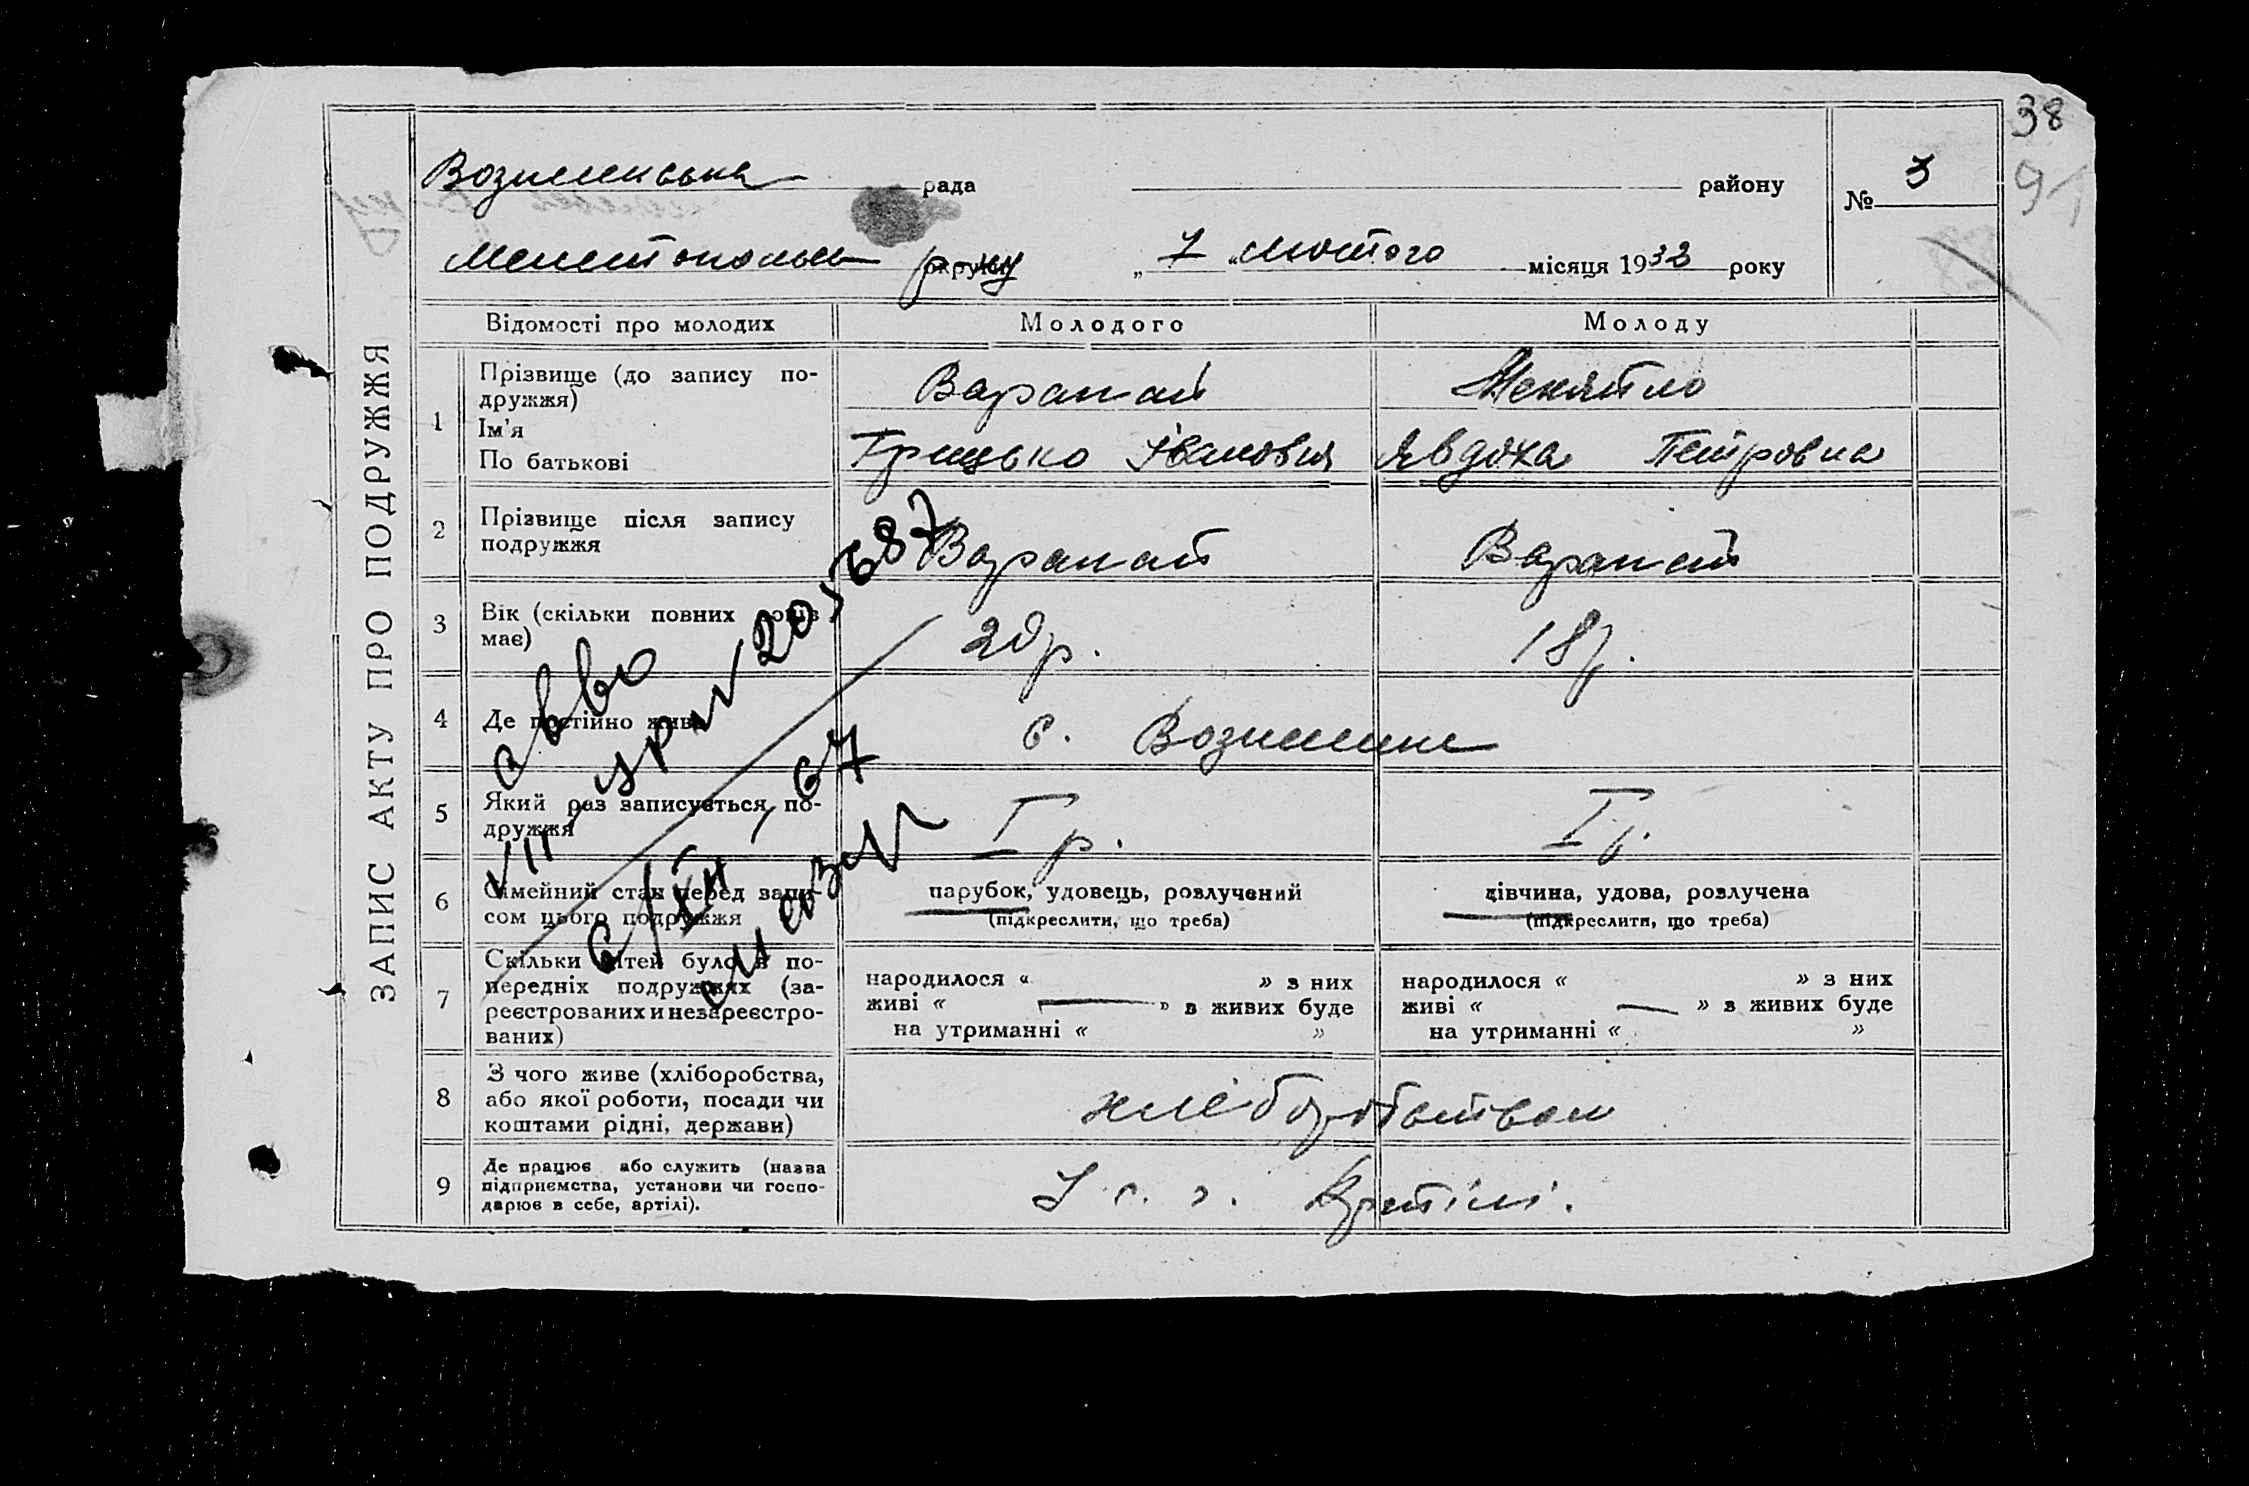 38
91
ЗАПИС АКТУ ПРО ПОДРУЖЖЯ
рада району № 3
„ 7 “ лютого місяця 1933 року
Відомості про молодих Молодого Молоду
1 Прізвище (до запису по-
дружжя)
Ім'я
По батькові
Варанай
Грицько Іванович Явдоха Петровна
2 Прізвище після запису
подружжя
Варанай Варанай
3 Вік (скільки повних років
має)
20 р. 18 р.
4 Де постійно живе
с.
5 Який раз записується, по-
дружжя
І р. І р.
6 Сімейний стан перед запи-
сом цього подружжя
парубок, удовець, розлучений
(підкреслити, що треба)
дівчина, удова, розлучена
(підкреслити, що треба)
7 Скільки дітей було в по-
передніх подружжях (за-
реєстрованих и незареєстро-
ваних)
народилося « » з них
живі « — » з живих буде
на утриманні « »
народилося « » з них
живі « — » з живих буде
на утриманні « »
8 З чого живе (хліборобства,
або якої роботи, посади чи
коштами рідні, держави)
хліборобством
9 Де працює або служить (назва
підприємства, установи чи госпо-
дарює в себе, артілі).
У с. г. Артілі.